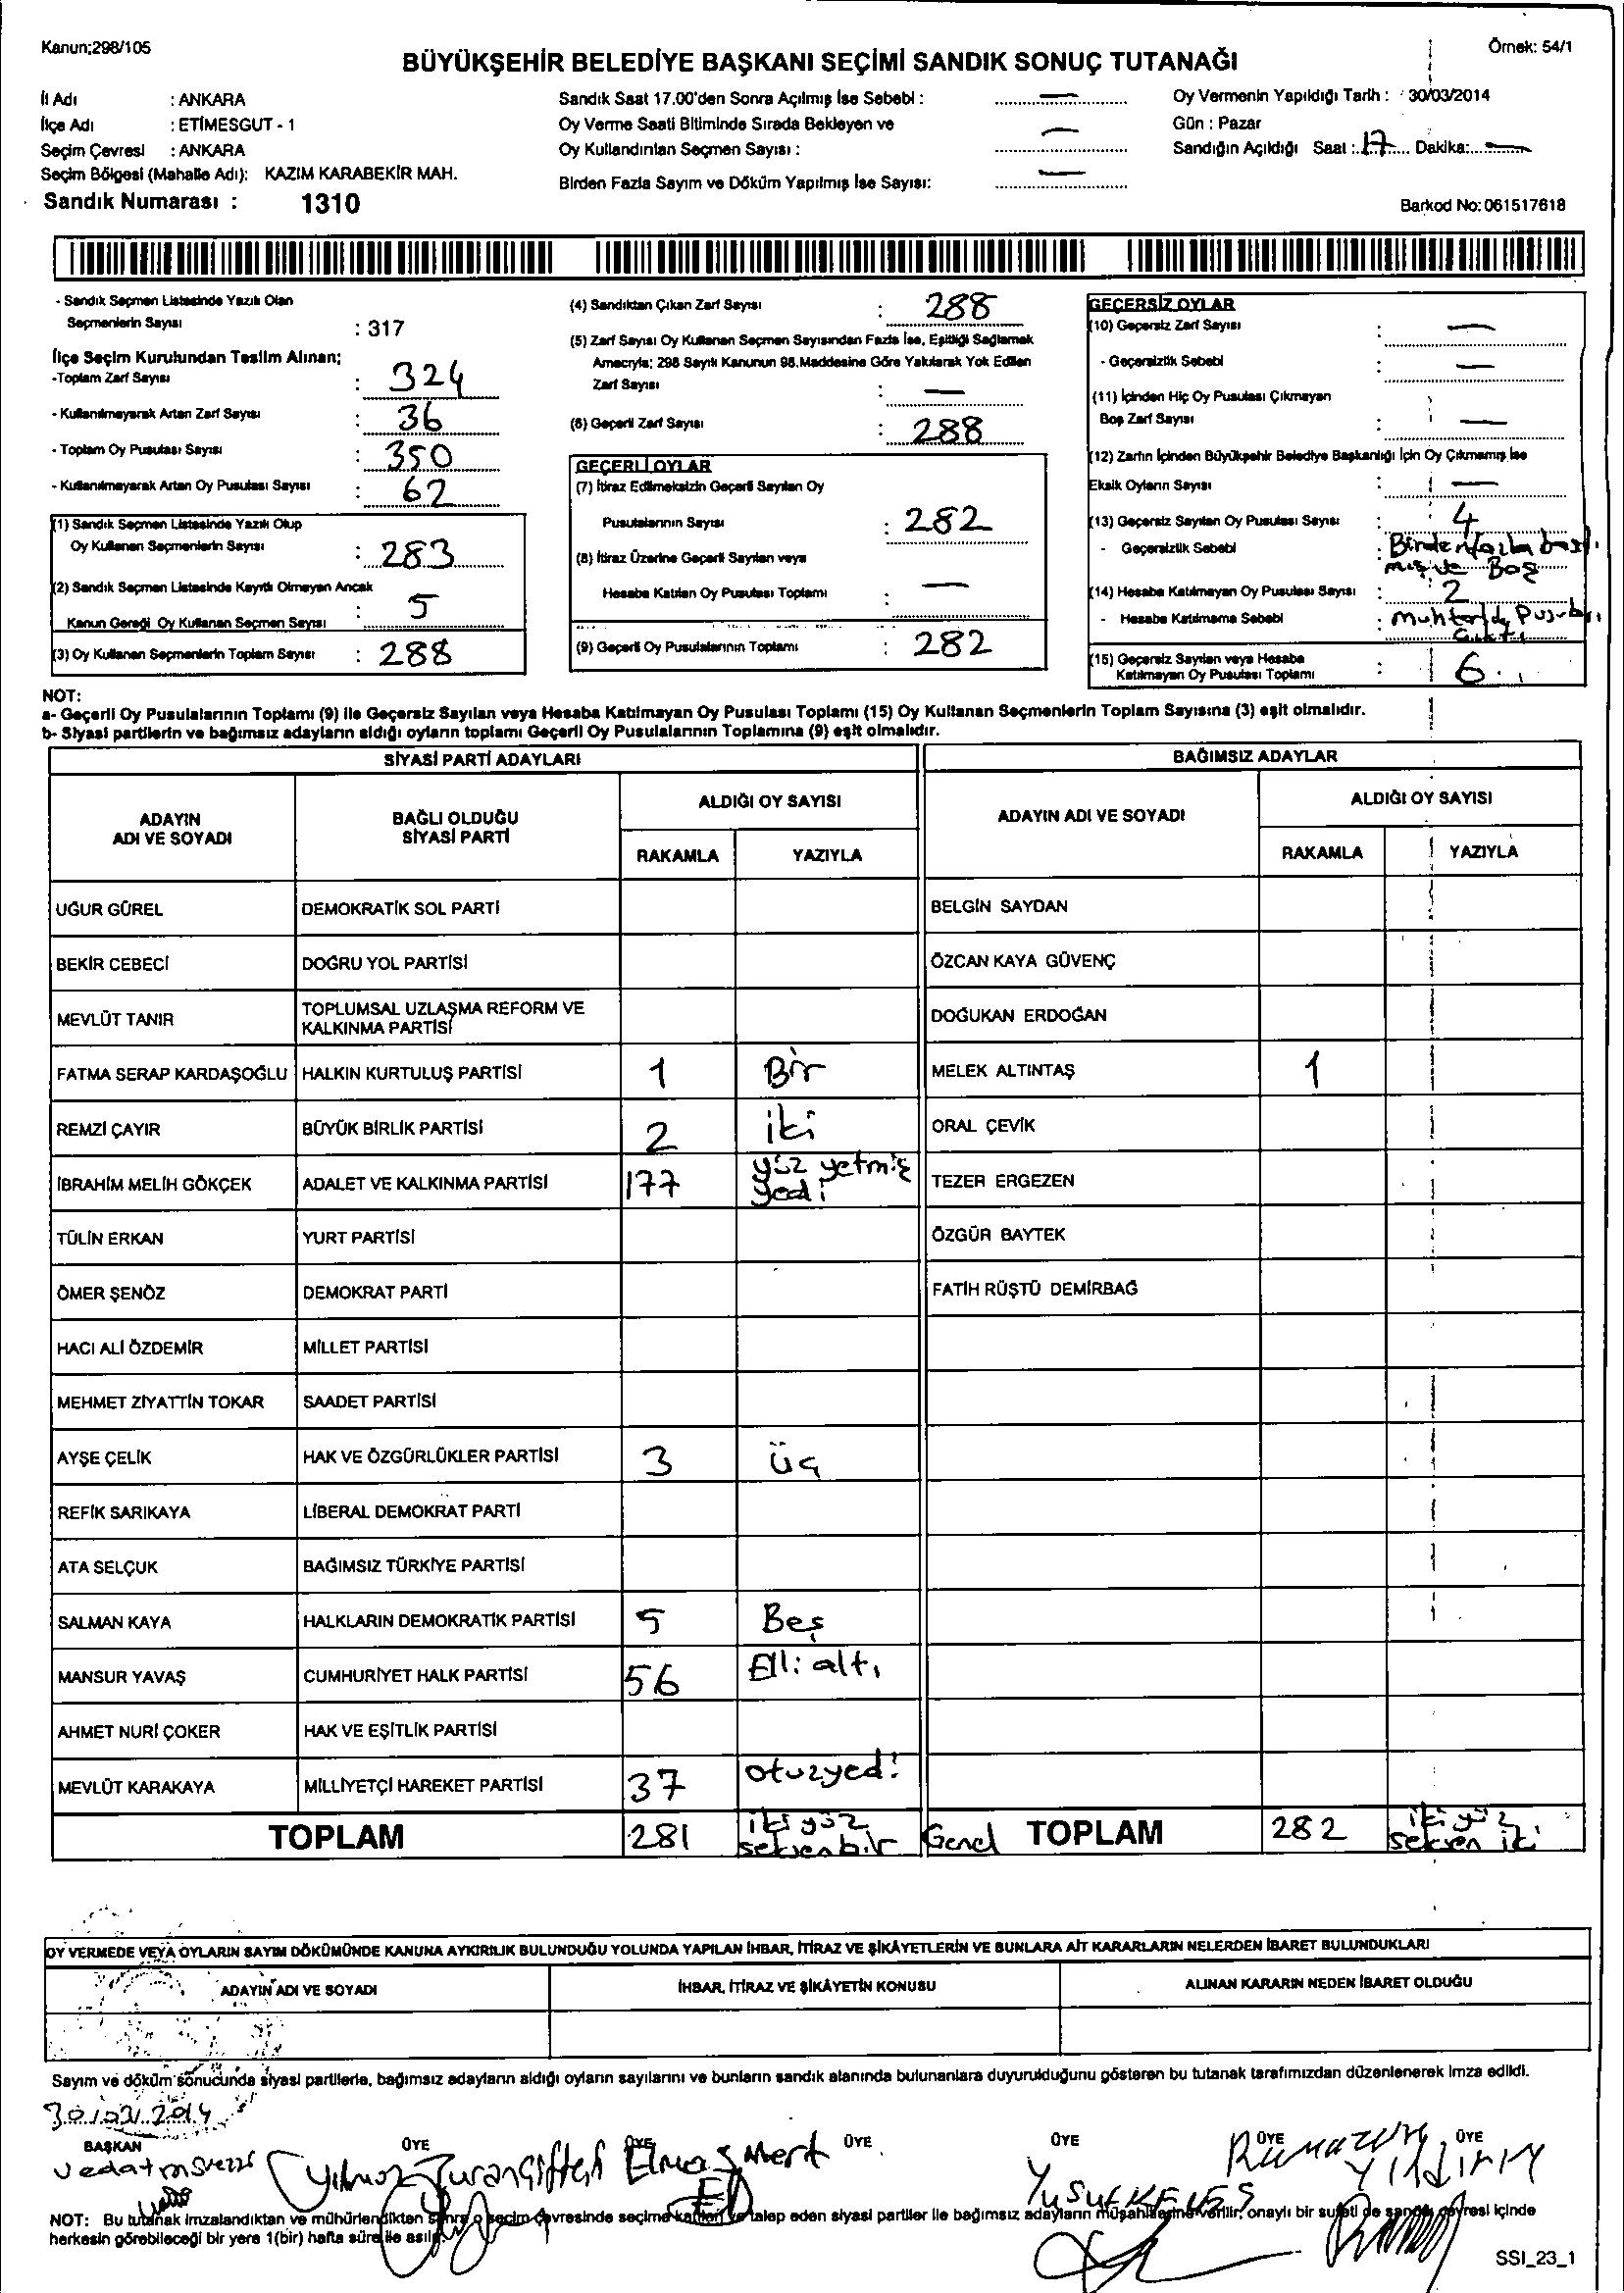 Kanun;298/105
Örnek: 54/1
BÜYÜKŞEHİR BELEDİYE BAŞKANI SEÇİMİ SANDIK SONUÇ TUTANAĞI
İl Adı : ANKARA
İlçe Adı : ETİMESGUT - 1
Seçim Çevresi : ANKARA
Seçim Bölgesi (Mahalle Adı): KAZIM KARABEKİR MAH.
Sandık Numarası : 1310
Sandık Saat 17.00'den Sonra Açılmış İse Sebebi : —
Oy Verme Saati Bitiminde Sırada Bekleyen ve
Oy Kullandırılan Seçmen Sayısı : —
Birden Fazla Sayım ve Döküm Yapılmış İse Sayısı: —
Oy Vermenin Yapıldığı Tarih : 30/03/2014
Gün : Pazar
Sandığın Açıldığı Saat : 17 Dakika: —
Barkod No: 061517618
- Sandık Seçmen Listesinde Yazılı Olan
Seçmenlerin Sayısı : 317
İlçe Seçim Kurulundan Teslim Alınan;
-Toplam Zarf Sayısı : 324
- Kullanılmayarak Artan Zarf Sayısı : 36
- Toplam Oy Pusulası Sayısı : 350
- Kullanılmayarak Artan Oy Pusulası Sayısı : 62
(1) Sandık Seçmen Listesinde Yazılı Olup
Oy Kullanan Seçmenlerin Sayısı : 283
(2) Sandık Seçmen Listesinde Kayıtlı Olmayan Ancak
Kanun Gereği Oy Kullanan Seçmen Sayısı : 5
(3) Oy Kullanan Seçmenlerin Toplam Sayısı : 288
(4) Sandıktan Çıkan Zarf Sayısı : 288
(5) Zarf Sayısı Oy Kullanan Seçmen Sayısından Fazla İse, Eşitliği Sağlamak
Amacıyla; 298 Sayılı Kanunun 98.Maddesine Göre Yakılarak Yok Edilen
Zarf Sayısı : —
(6) Geçerli Zarf Sayısı : 288
GEÇERLİ OYLAR
(7) İtiraz Edilmeksizin Geçerli Sayılan Oy
Pusulalarının Sayısı : 282
(8) İtiraz Üzerine Geçerli Sayılan veya
Hesaba Katılan Oy Pusulası Toplamı : —
(9) Geçerli Oy Pusulalarının Toplamı : 282
GEÇERSİZ OYLAR
(10) Geçersiz Zarf Sayısı : —
- Geçersizlik Sebebi : —
(11) İçinden Hiç Oy Pusulası Çıkmayan
Boş Zarf Sayısı : —
(12) Zarfın İçinden Büyükşehir Belediye Başkanlığı İçin Oy Çıkmamış İse
Eksik Oyların Sayısı : —
(13) Geçersiz Sayılan Oy Pusulası Sayısı : 4
- Geçersizlik Sebebi : Birden fazla basıl
mış ve Boş
(14) Hesaba Katılmayan Oy Pusulası Sayısı : 2
- Hesaba Katılmama Sebebi : muhtarlık Pusulası
Çıktı
(15) Geçersiz Sayılan veya Hesaba
Katılmayan Oy Pusulası Toplamı : 6
NOT:
a- Geçerli Oy Pusulalarının Toplamı (9) ile Geçersiz Sayılan veya Hesaba Katılmayan Oy Pusulası Toplamı (15) Oy Kullanan Seçmenlerin Toplam Sayısına (3) eşit olmalıdır.
b- Siyasi partilerin ve bağımsız adayların aldığı oyların toplamı Geçerli Oy Pusulalarının Toplamına (9) eşit olmalıdır.
SİYASİ PARTİ ADAYLARI
BAĞIMSIZ ADAYLAR
ADAYIN ADI VE SOYADI
BAĞLI OLDUĞU SİYASİ PARTİ
ALDIĞI OY SAYISI
RAKAMLA YAZIYLA
ADAYIN ADI VE SOYADI
ALDIĞI OY SAYISI
RAKAMLA YAZIYLA
UĞUR GÜREL DEMOKRATİK SOL PARTİ BELGİN SAYDAN
BEKİR CEBECİ DOĞRU YOL PARTİSİ ÖZCAN KAYA GÜVENÇ
MEVLÜT TANIR TOPLUMSAL UZLAŞMA REFORM VE KALKINMA PARTİSİ DOĞUKAN ERDOĞAN
FATMA SERAP KARDAŞOĞLU HALKIN KURTULUŞ PARTİSİ 1 Bir MELEK ALTINTAŞ 1
REMZİ ÇAYIR BÜYÜK BİRLİK PARTİSİ 2 iki ORAL ÇEVİK
İBRAHİM MELİH GÖKÇEK ADALET VE KALKINMA PARTİSİ 177 yüz yetmiş yedi TEZER ERGEZEN
TÜLİN ERKAN YURT PARTİSİ ÖZGÜR BAYTEK
ÖMER ŞENÖZ DEMOKRAT PARTİ FATİH RÜŞTÜ DEMİRBAĞ
HACI ALİ ÖZDEMİR MİLLET PARTİSİ
MEHMET ZİYATTİN TOKAR SAADET PARTİSİ
AYŞE ÇELİK HAK VE ÖZGÜRLÜKLER PARTİSİ 3 üç
REFİK SARIKAYA LİBERAL DEMOKRAT PARTİ
ATA SELÇUK BAĞIMSIZ TÜRKİYE PARTİSİ
SALMAN KAYA HALKLARIN DEMOKRATİK PARTİSİ 5 Beş
MANSUR YAVAŞ CUMHURİYET HALK PARTİSİ 56 Elli altı
AHMET NURİ ÇOKER HAK VE EŞİTLİK PARTİSİ
MEVLÜT KARAKAYA MİLLİYETÇİ HAREKET PARTİSİ 37 otuzyedi
TOPLAM 281 iki yüz seksen bir Genel TOPLAM 282 iki yüz seksen iki
OY VERMEDE VEYA OYLARIN SAYIM DÖKÜMÜNDE KANUNA AYKIRILIK BULUNDUĞU YOLUNDA YAPILAN İHBAR, İTİRAZ VE ŞİKÂYETLERİN VE BUNLARA AİT KARARLARIN NELERDEN İBARET BULUNDUKLARI
ADAYIN ADI VE SOYADI İHBAR, İTİRAZ VE ŞİKÂYETİN KONUSU ALINAN KARARIN NEDEN İBARET OLDUĞU
Sayım ve döküm sonucunda siyasi partilerle, bağımsız adayların aldığı oyların sayılarını ve bunların sandık alanında bulunanlara duyurulduğunu gösteren bu tutanak tarafımızdan düzenlenerek imza edildi.
30/03/2014
BAŞKAN ÜYE ÜYE ÜYE ÜYE ÜYE ÜYE
Vedat Yılmaz Elmas Mert Yusuf KELEŞ Ramazan YILDIRIM
NOT: Bu tutanak imzalandıktan ve mühürlendikten sonra o seçim çevresinde seçime katılan ve talep eden siyasi partiler ile bağımsız adayların müşahitlerine verilir, onaylı bir sureti de sandık çevresi içinde
herkesin görebileceği bir yere 1(bir) hafta süre ile asılır.
SSI_23_1